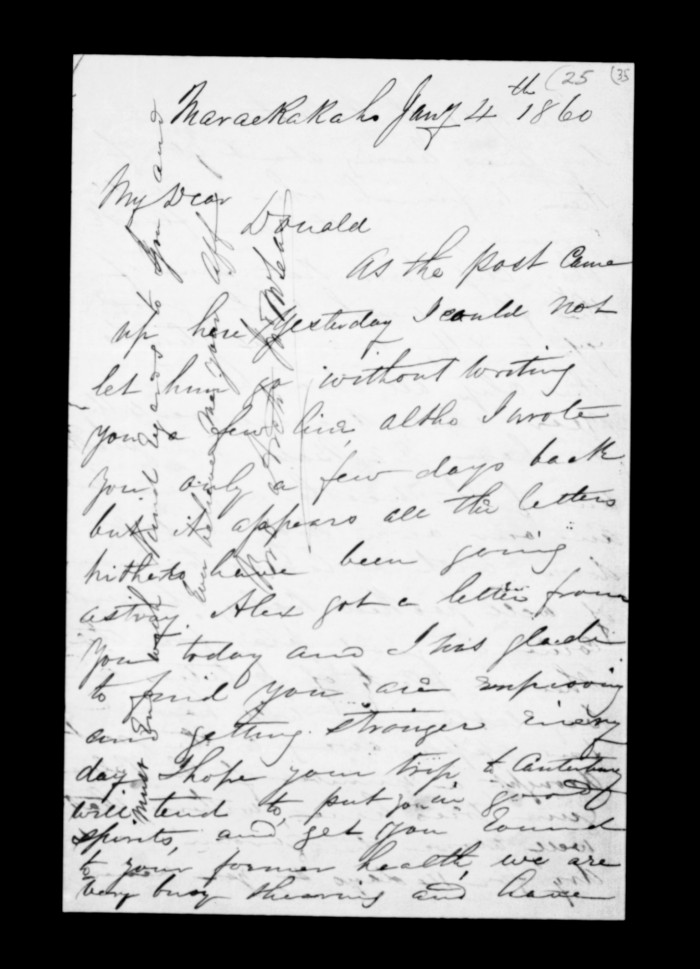 (25 (35
Maraekakaho Jany 4th 1860
My Dear
Donald
As the post came
up here yesterday I could not
let him go without writing
you a few lines altho I wrote
you only a few days back
but it appears all the letters
hitherto have been going
astray. Alex got a letter from
you today and I was glad
to find you are improving
and getting stronger every
day I hope your trip to Canterbury
will tend to put you in good
spirits, and get you round
to your former health, we are
very busy shearing and have
Must end with kind regards to you and
Ever believe me your aff